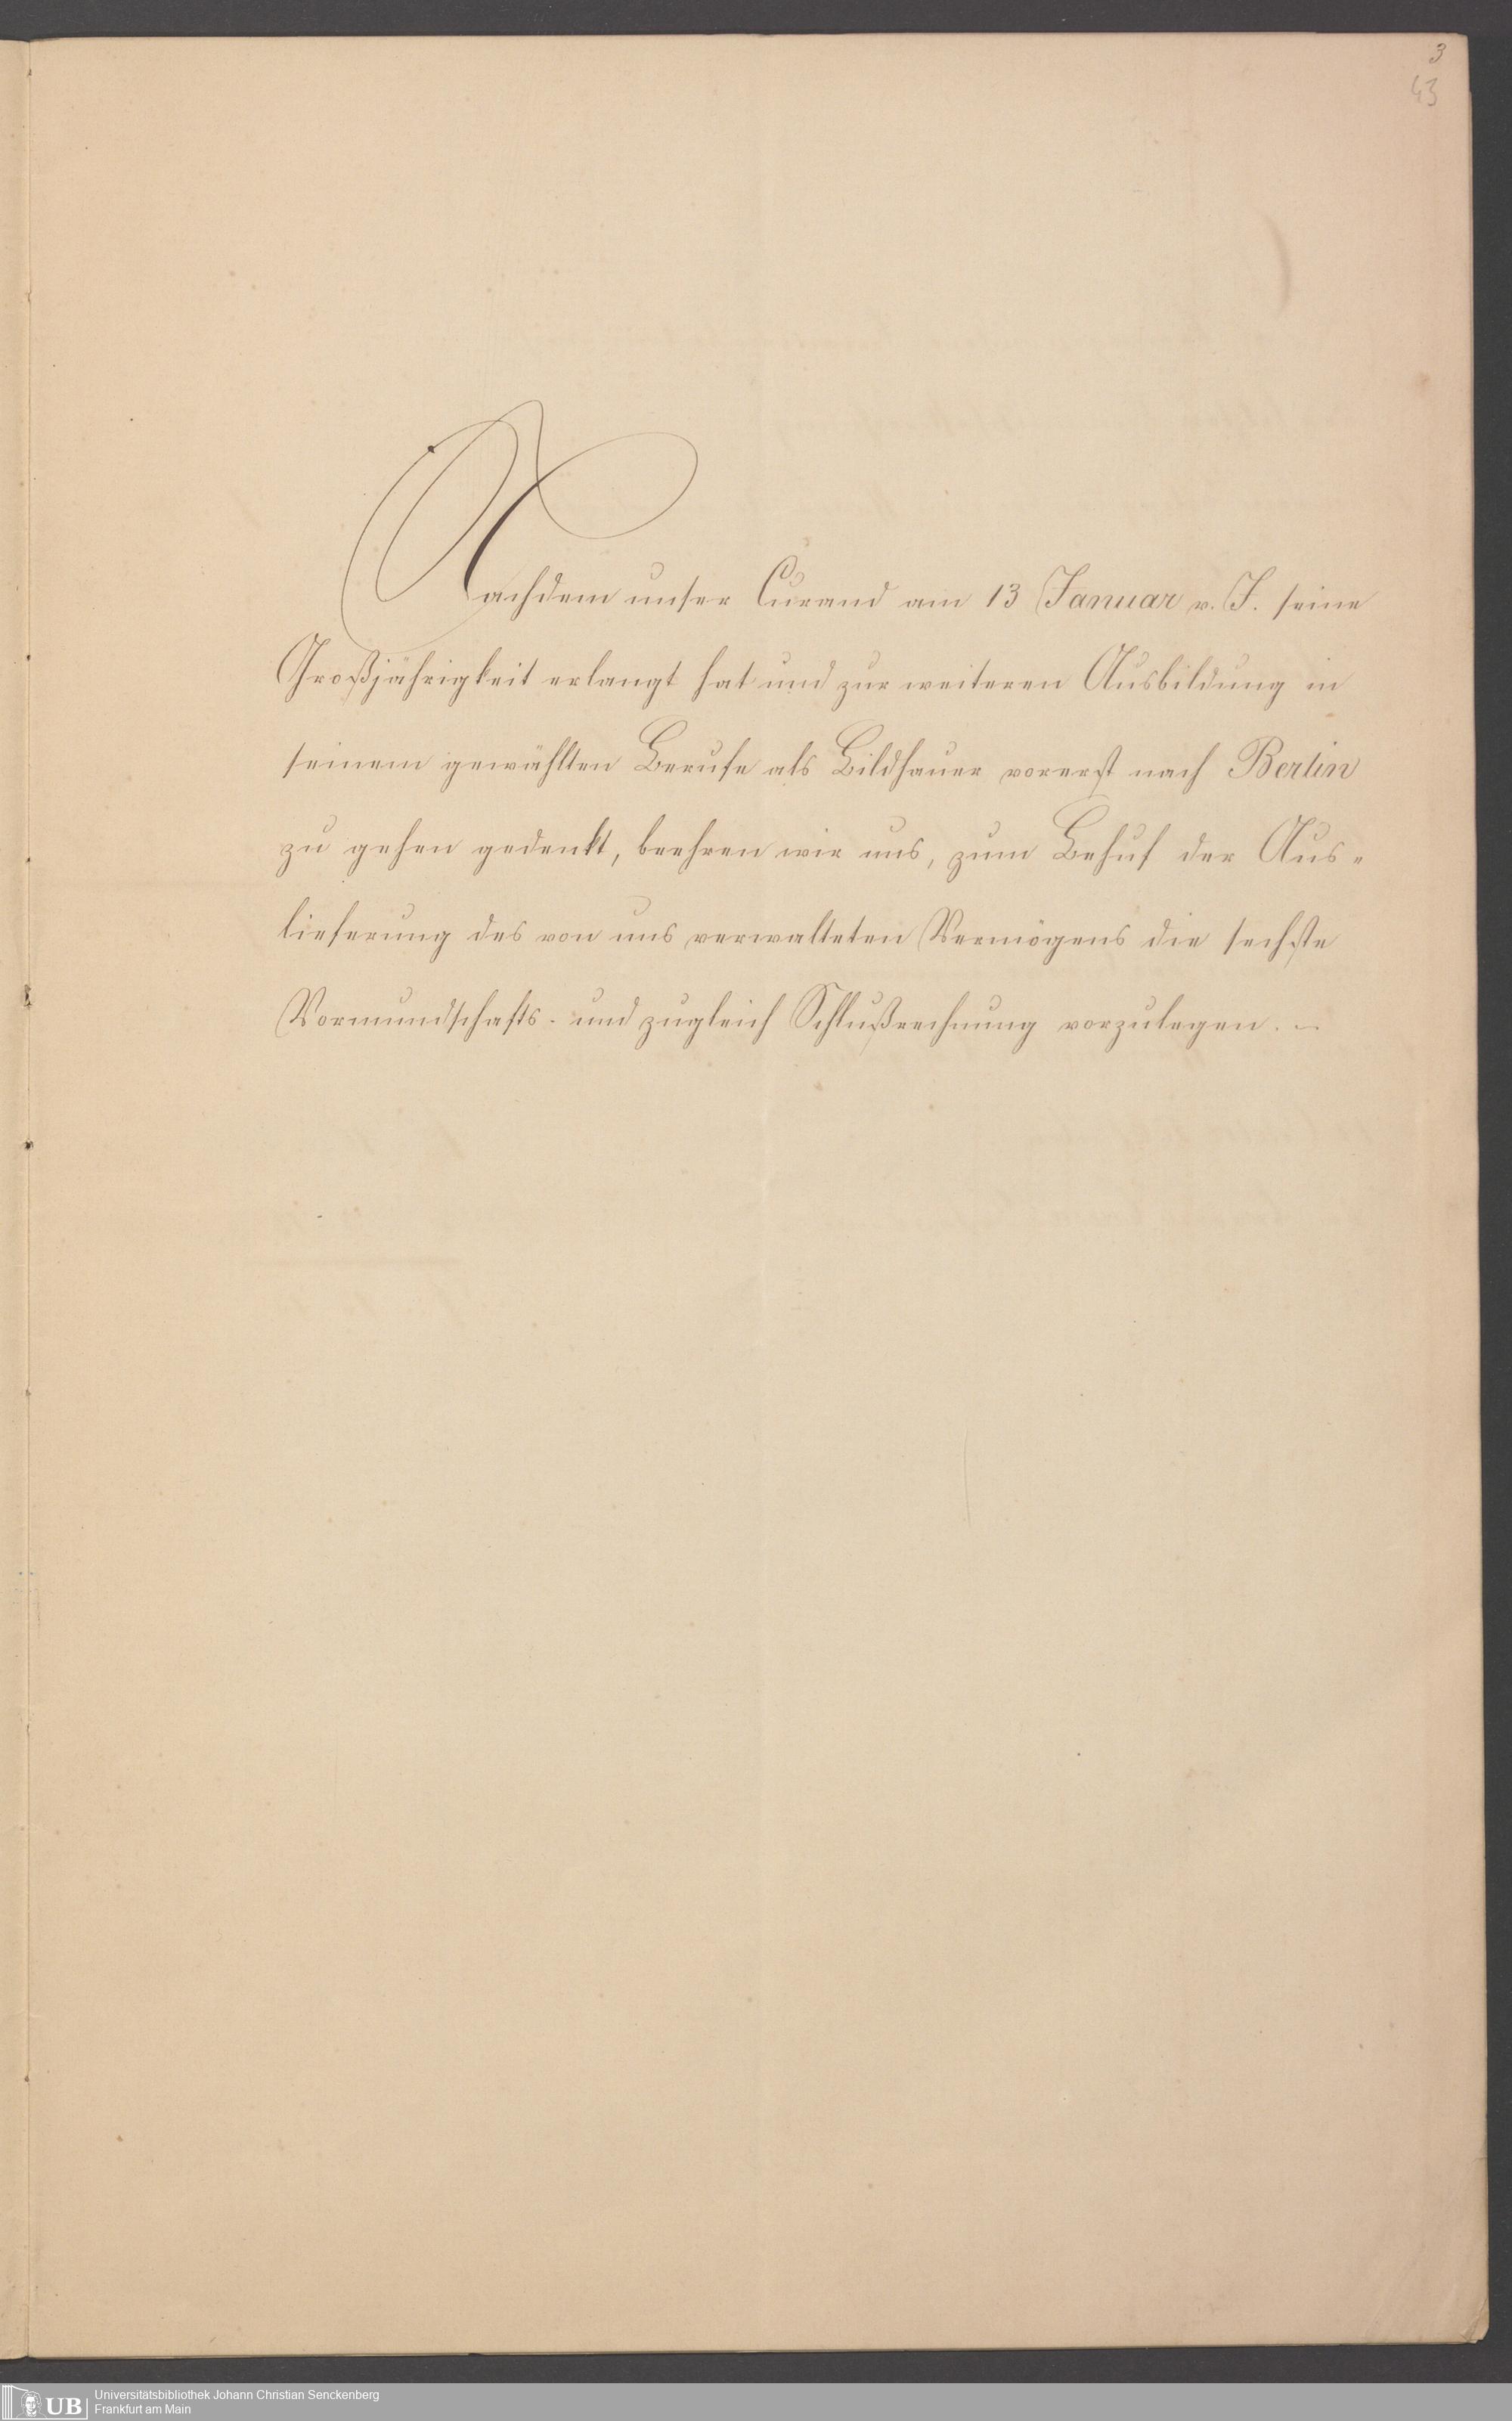 3
43
Nachdem unser Curand am 13 Januar v. J. seine
Großjährigkeit erlangt hat und zur weiteren Ausbildung in
seinem gewählten Berufe als Bildhauer vorerst nach Berlin
zu gehen gedenkt, beehren wir uns, zum Behuf der Aus-
lieferung des von uns verwalteten Vermögens die sechste
Vormundschafts- und zugleich Schlußrechnung vorzulegen. –
UB
Universitätsbibliothek Johann Christian Senckenberg
Frankfurt am Main